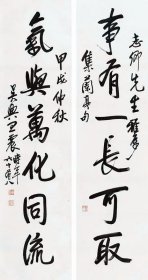 事有一長可取
志卿先生雅屬
集蘭亭句
氣與萬化同流
甲戌仲秋
吳興王震時年六十有八